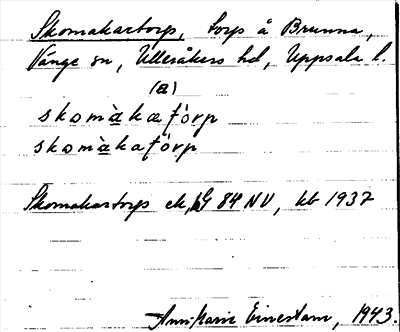 Skomakartorp, torp å Brunna,
Vänge sn, Ulleråkers hd, Uppsala l.
(a)
skomàkaţórp
skomàkaţórp
Skomakartorp ek, G 84 NV, kb 1937
Ann-Marie Einestam, 1943.